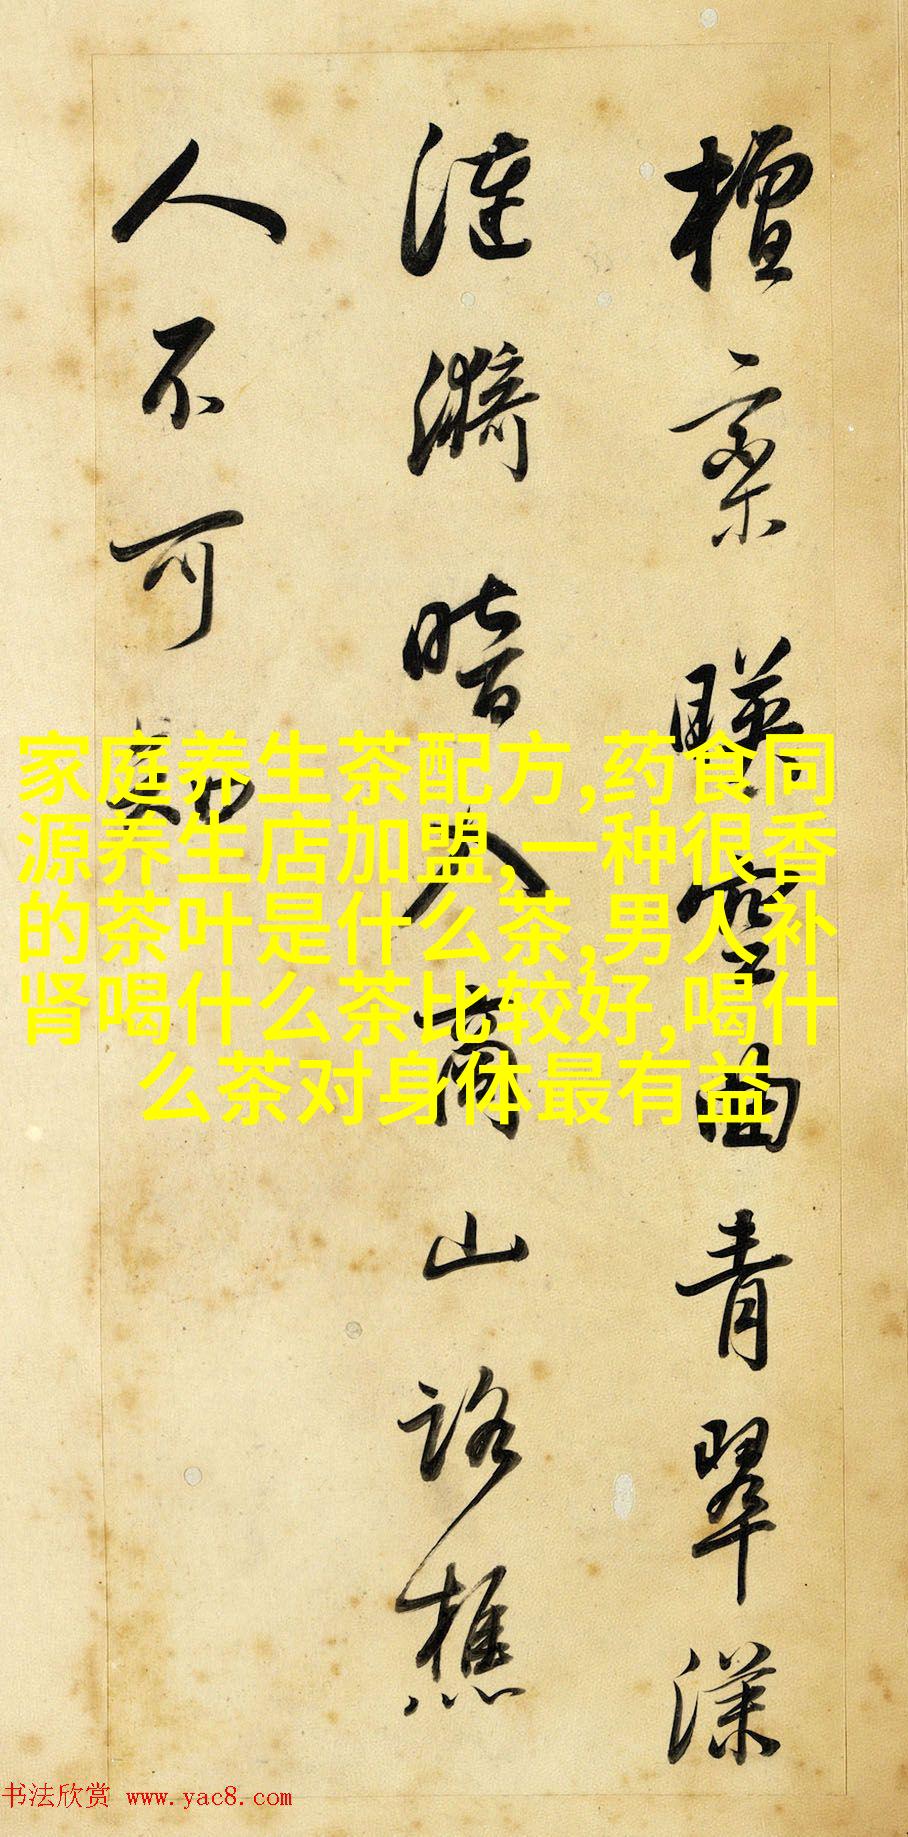 檀栾映空曲青翠漾
涟漪暗入商山路樵
人不可知
家庭养生茶配方,药食同
源养生店加盟,一种很香
的茶叶是什么茶,男人补
肾喝什么茶比较好,喝什
么茶对身体最有益
书法欣赏 www.yac8.com